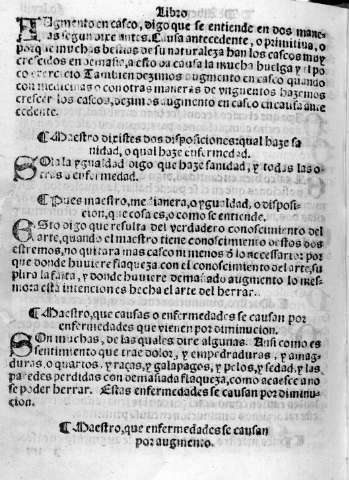 Libro
Augmento en casco, digo que se entiende en dos mane-
ras segun dire antes. Causa antecedente, o primitiua, o
porque muchas bestias de su naturaleza han los cascos muy
crescidos en demasia, a esto da causa la mucha huelga y el po
co exercicio Tambien dezimos augmento en casco quando
con medicinas o con otras maneras de vnguentos hazemos
crescer los cascos, dezimos augmento en casco en causa ante
cedente.
¶ Maestro dixistes dos disposiciones: qual haze sa
nidad, o qual haze enfermedad.
Sola la ygualdad digo que haze sanidad, y todas las o-
tras enfermedad.
¶ Pues maestro, mediania, o ygualdad, o disposi-
cion, que cosa es, o como se entiende.
Esto digo que resulta del verdadero conoscimiento del
arte, quando el maestro tiene conoscimiento destos dos
estremos, no quitara mas casco ni menos d lo necessario: por
que donde huuiere flaqueza con el conoscimiento del arte, su
plira la falta, y donde huuiere demasiado augmento lo mes-
mo: a esta intencion es hecha el arte del herrar.
¶ Maestro, que causas o enfermedades se causan por
enfermedades que vienen por diminucion.
Son muchas, de las quales dire algunas. Ansi como es
sentimiento que trae dolor, y empedraduras, y amaga-
duras, o quartos, y raças, y galapagos, y pelos, y sedad, y las
paredes perdidas con demasiada flaqueza, como acaesce ano
se poder herrar. Estas enfermedades se causan por diminu-
cion.
¶ Maestro, que enfermedades se causan
por augmento.